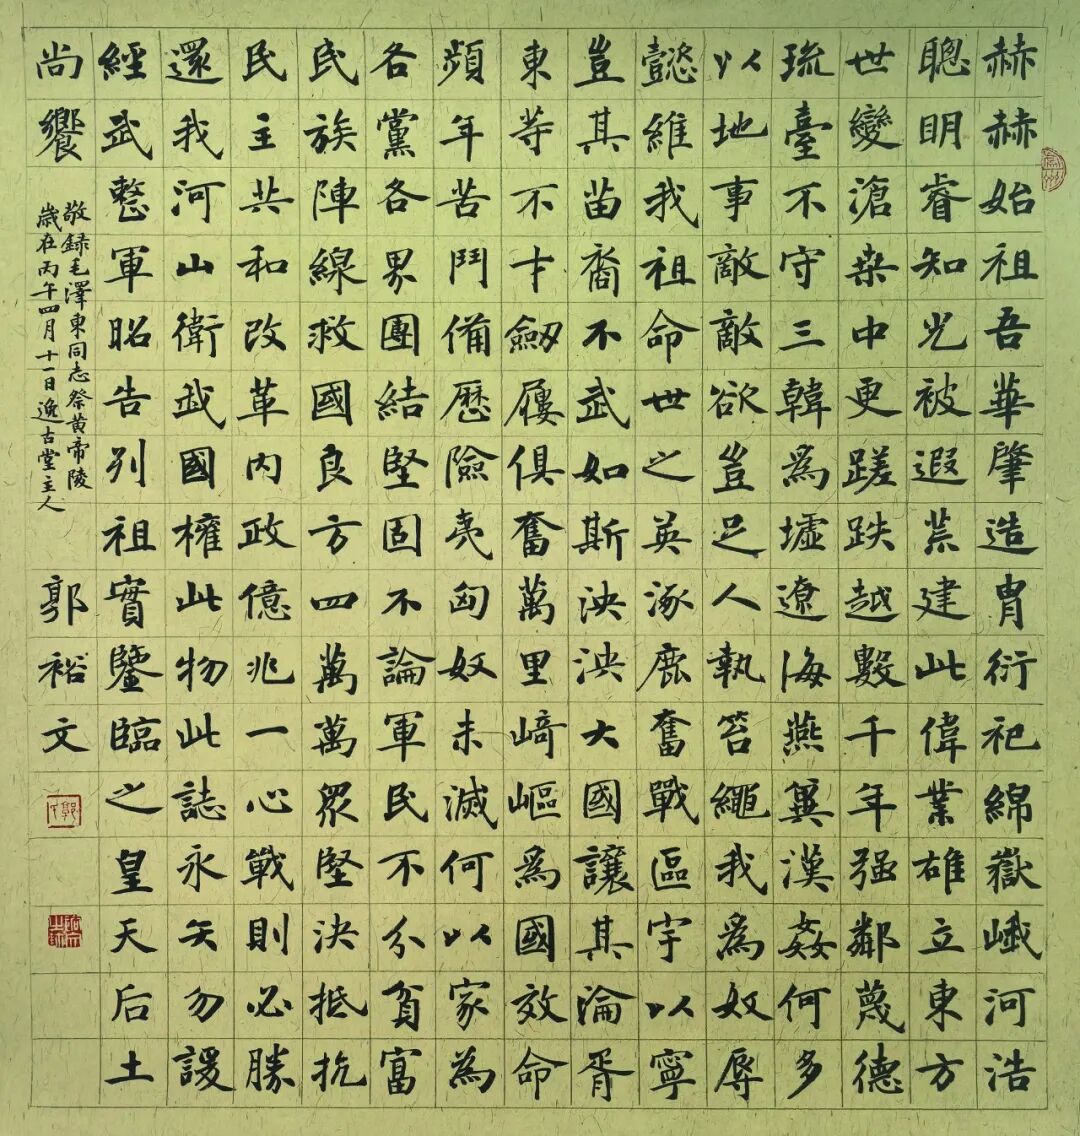 赫赫始祖吾華肇造胄衍祀綿嶽峨河浩
聰明睿知光被遐荒建此偉業雄立東方
世變滄桒中更蹉跌越數千年强鄰蔑德
琉臺不守三韓爲墟遼海燕冀漢姦何多
以地事敵敵欲豈足人執笞繩我爲奴辱
懿維我祖命世之英涿鹿奮戰區宇以寧
豈其苗裔不武如斯泱泱大國讓其淪胥
東等不才劒屨俱奮萬里崎嶇爲國效命
頻年苦鬥備歷險夷匈奴未滅何以家為
各黨各界團結堅固不論軍民不分貧富
民族陣線救國良方四萬萬眾堅決抵抗
民主共和改革內政億兆一心戰則必勝
還我河山衛我國權此物此誌永矢勿諼
經武整軍昭告列祖實鑒臨之皇天后土
尚饗
敬録毛澤東同志祭黄帝陵
歲在丙午四月十一日逸古堂主人
郭裕文